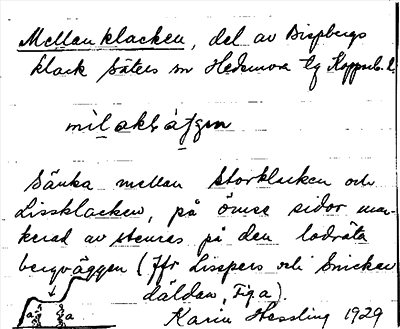 Mellanklacken, del av Bispbergs
klack Säters sn Hedemora tg Kopparb. l.
Sänka mellan Storklacken och
Lissklacken, på ömse sidor mar-
kerad av stenras på den lodräta
bergväggen (Jfr Lisspers och Snickar
däldan, Fig a).
a a
Karin Hessling 1929